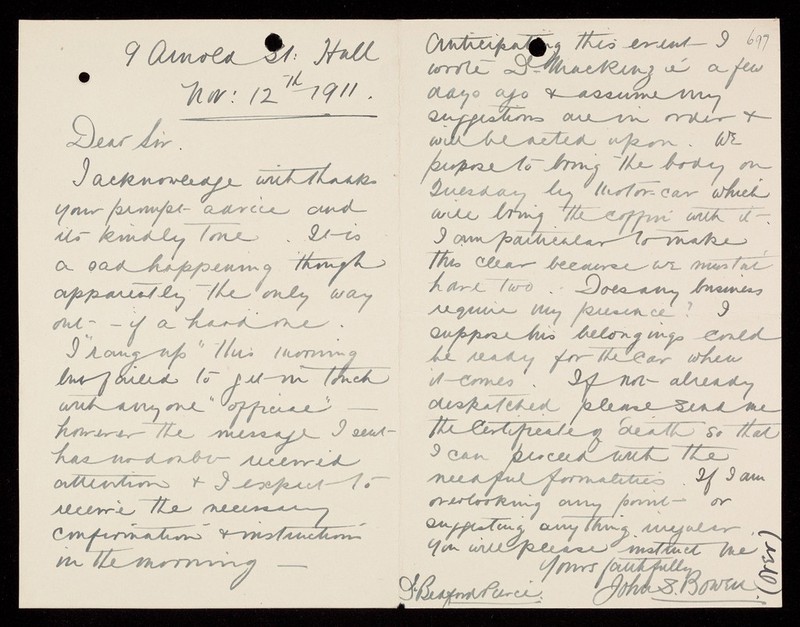 9 Arnold St: Hull
Nov: 12th 1911.
Dear Sir.
I acknowledge with thanks
your prompt advice and
its kindly tone. It is
a sad happening though
apparently the only way
out - if a hard one.
I "rang up" this morning
but failed to get in touch
with anyone "official" —
however the message I sent
has no doubt received
attention & I expect to
receive the necessary
confirmation & instructions
in the morning —
697
Anticipating this event I
wrote Dr Mackenzie a few
days ago & assume my
suggestions are in order &
will be acted upon. We
propose to bring the body on
Tuesday by motor-car which
will bring the coffin with it.
I am particular to make
this clear because we mustn't
have two. Does any business
require my presence? I
suppose his belongings could
be ready for the car when
it comes. If not already
despatched please send me
the Certificate of death so that
I can proceed with the
needful formalities. If I am
overlooking any point - or
suggesting anything irregular,
you will please instruct me
Yours faithfully
John S. Bowen.
Bedford Pierce.